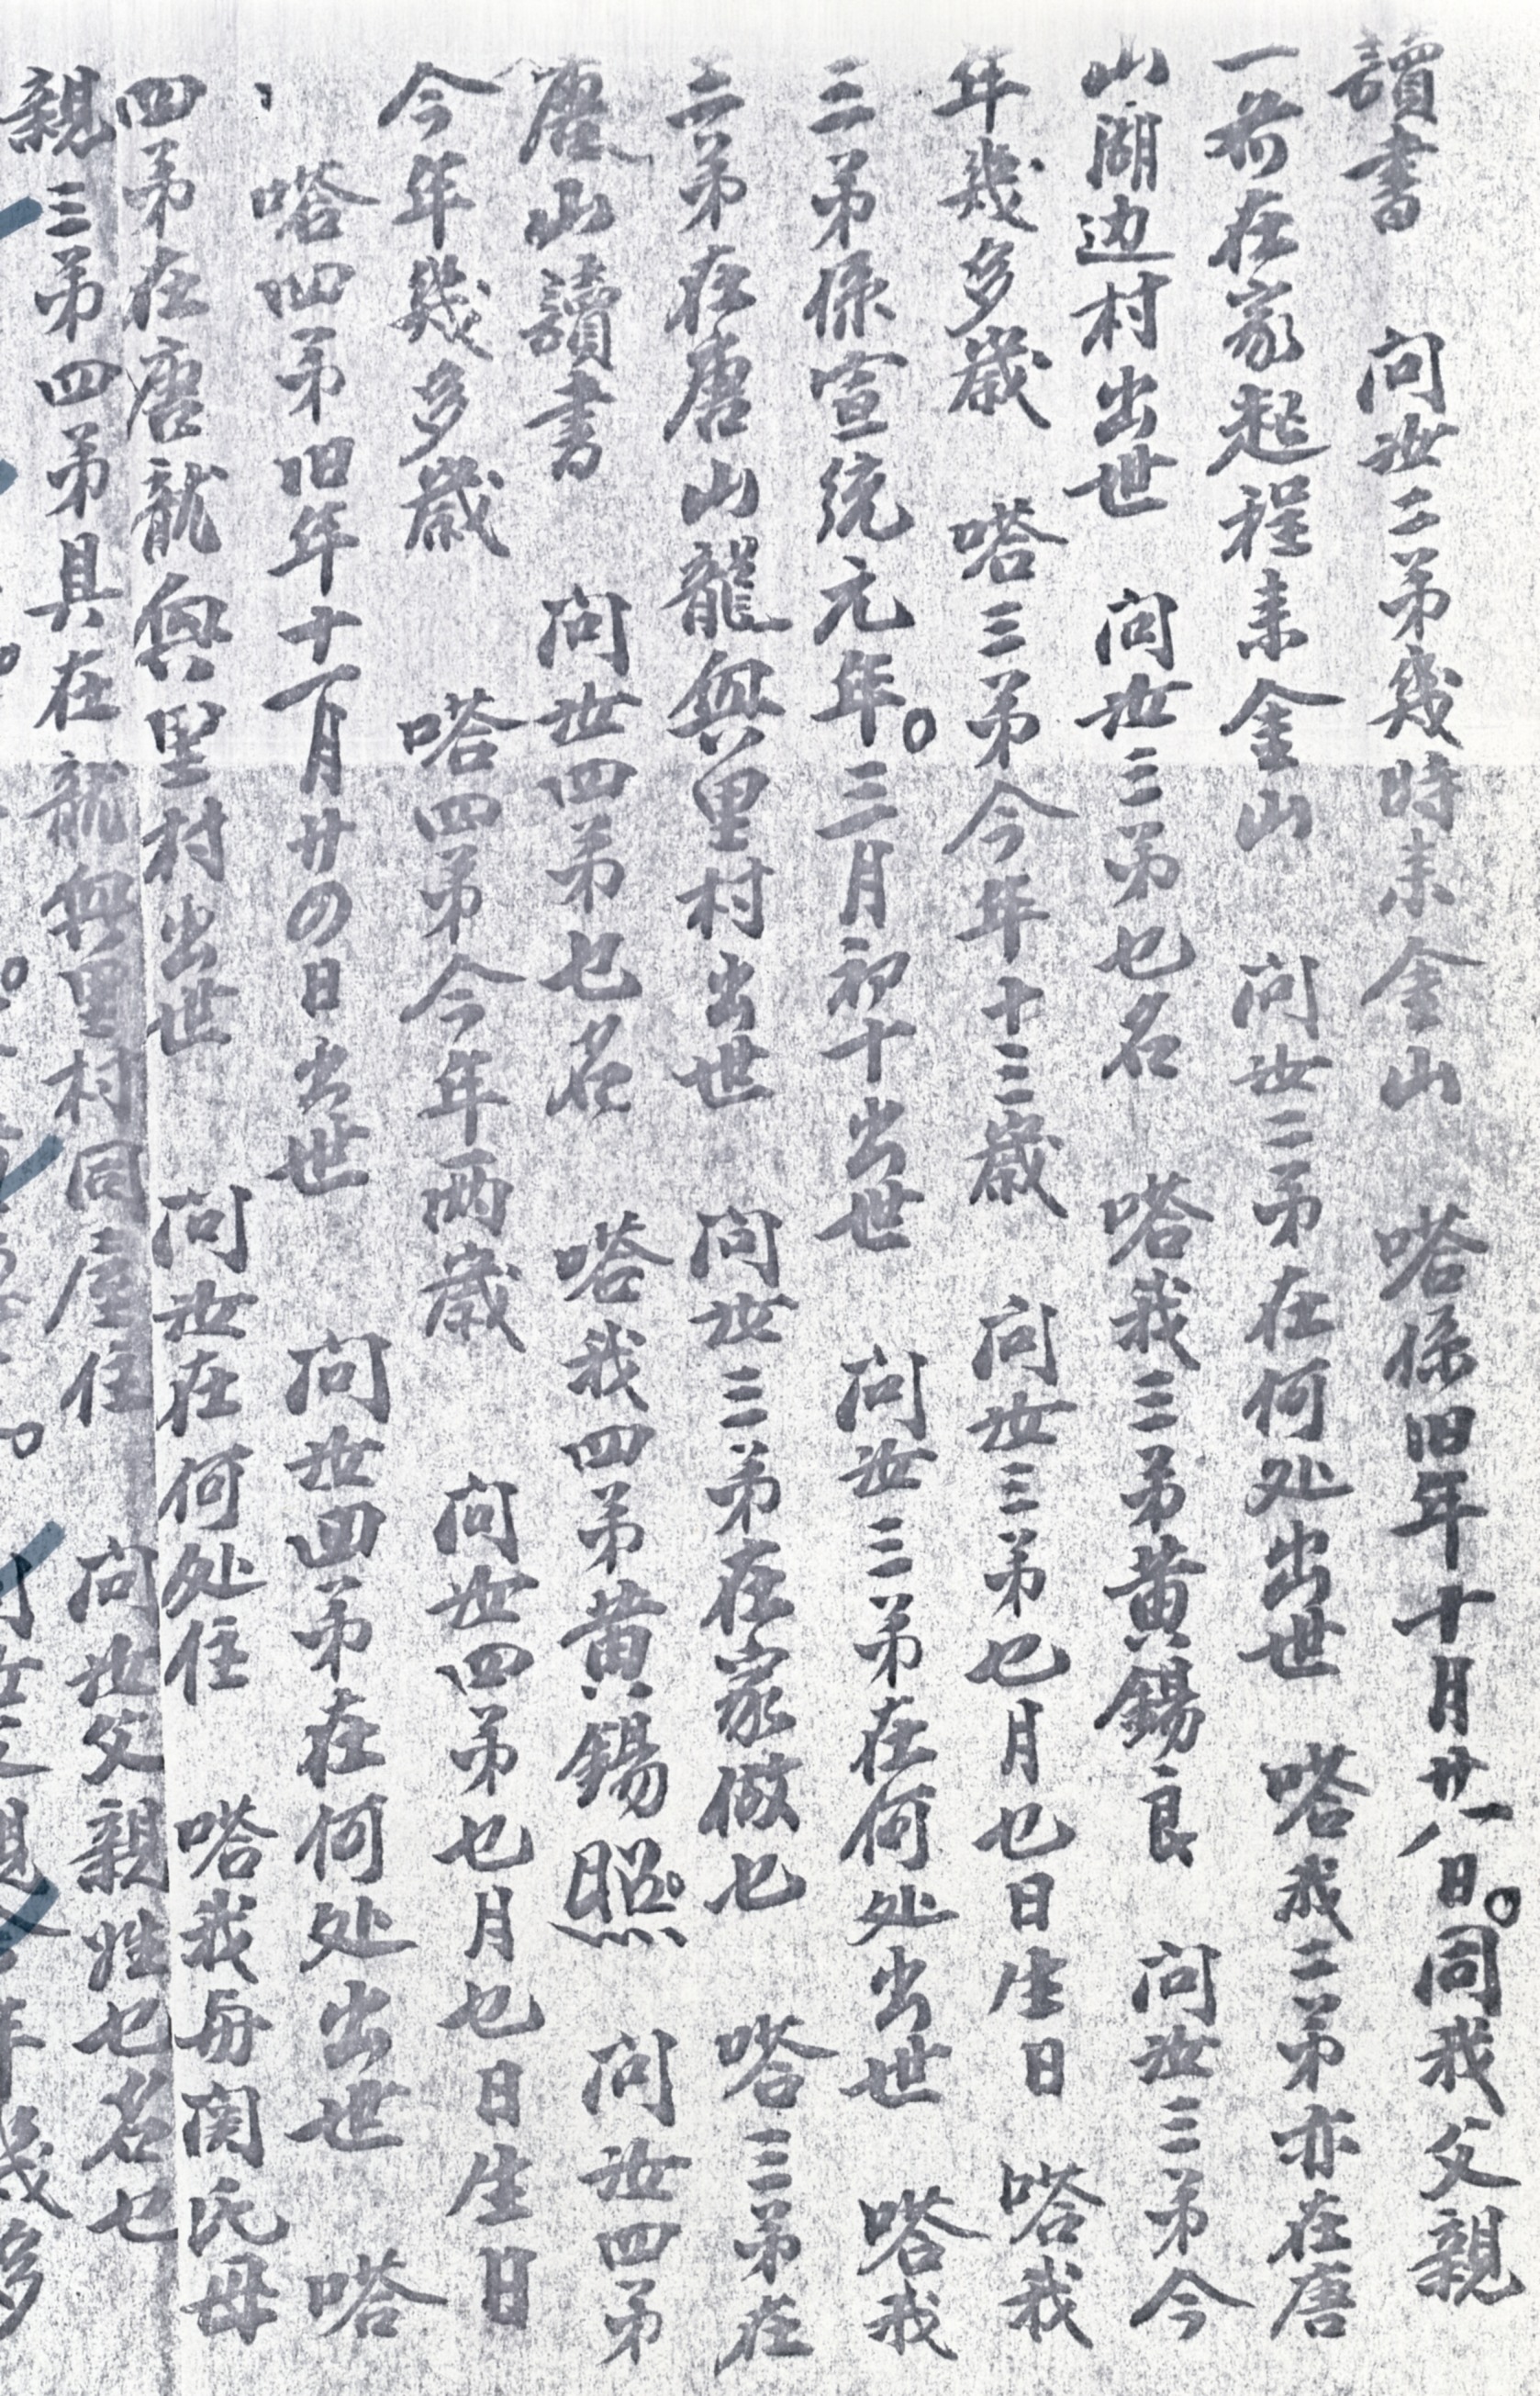 讀書　問汝二弟幾時来金山　嗒係旧年十月廿八日同我父親
一齐在家起程来金山　問汝二弟在何处出世　嗒我二弟亦在唐
山湖边村出世　問汝三弟乜名　嗒我三弟黄錫良　問汝三弟今
年幾多歲　嗒三弟今年十三歲　問汝三弟乜月乜日生日　嗒我
三弟係宣統元年三月初十出世　問汝三弟在何处出世　嗒我
三弟在唐山龍興里村出世　問汝三弟在家做乜　嗒三弟在
唐山讀書　問汝四弟乜名　嗒我四弟黄錫照　問汝四弟
今年幾多歲　嗒四弟今年两歲　問汝四弟乜月乜日生日
嗒四弟旧年十一月廿四日出世　問汝四弟在何处出世　嗒
四弟在唐龍興里村出世　問汝在何处住　嗒我毋関氏母
親三弟四弟具在龍興里村同屋住　問汝父親姓乜名乜